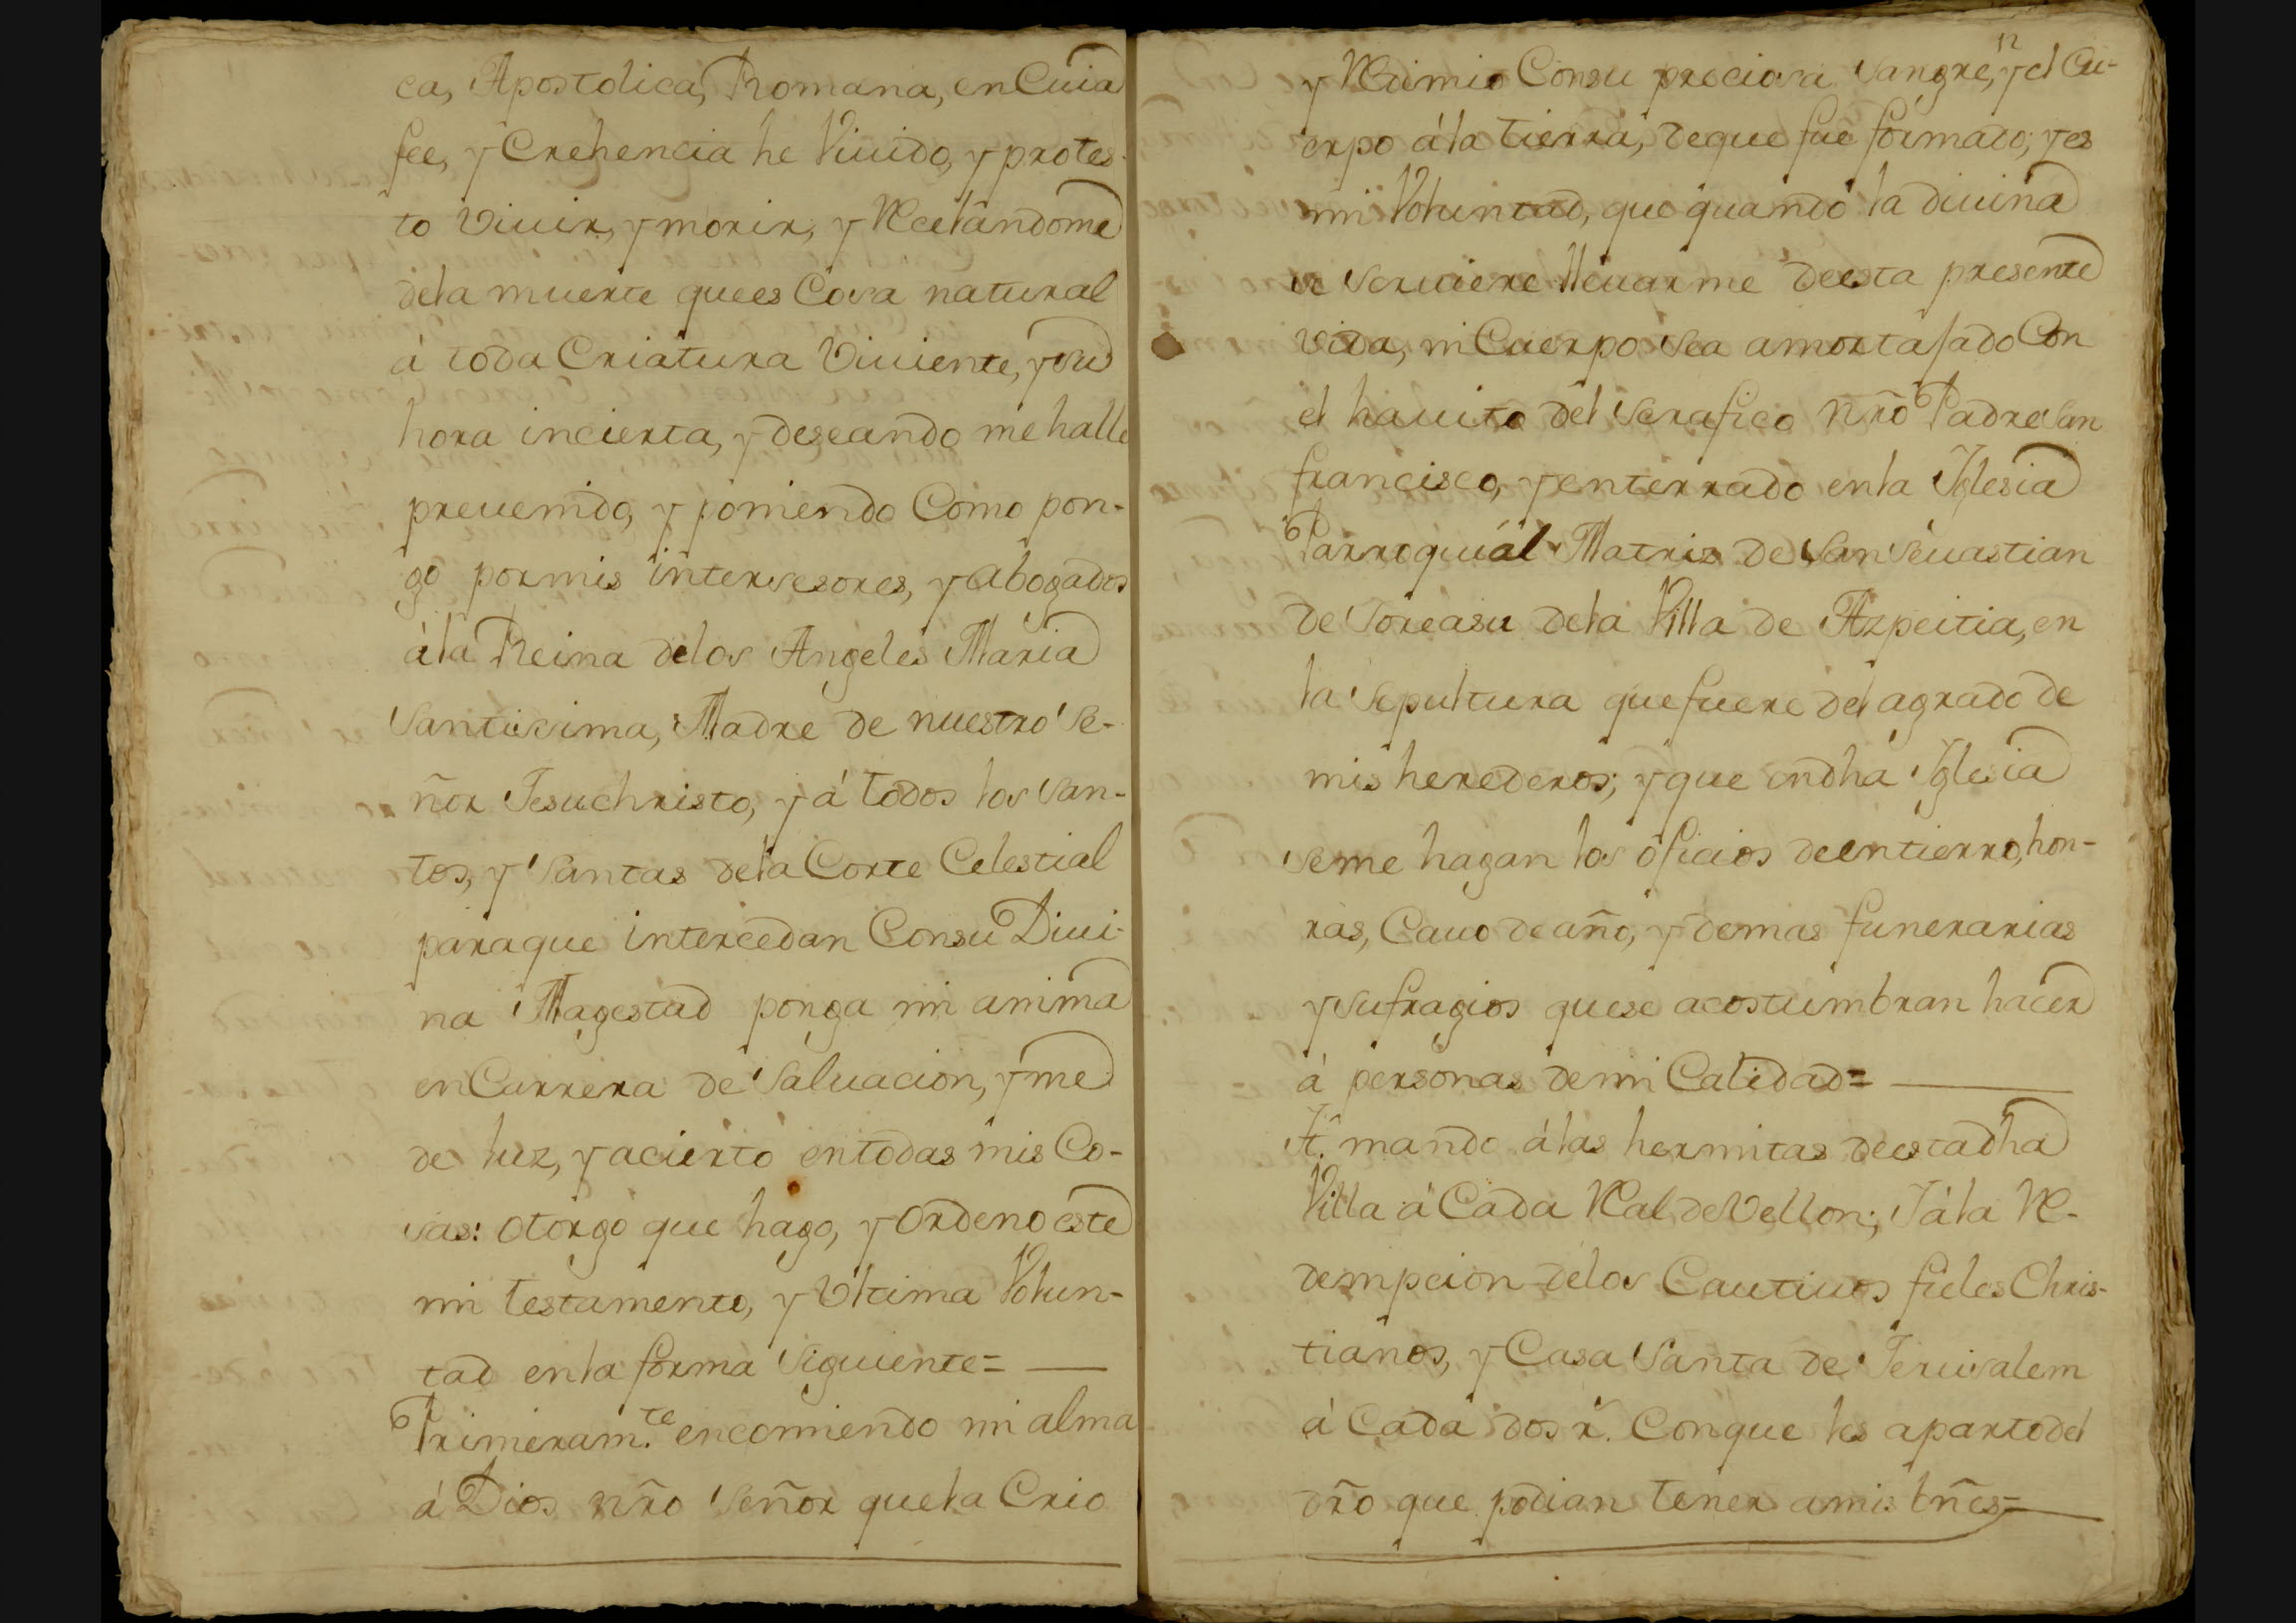 ca, Apostolica, Romana, en Cuia
fee, y Crehencia he Viuido, y protes-
to Viuir, y morir, y Recelandome
dela muerte quees Cosa natural
á toda Criatura Viuiente, y su
hora incierta, y deseando me halle
preuenido, y poniendo Como pon-
go por mis intersesores, y Abogados
á la Reina delos Angeles Maria
Santissima, Madre de nuestro Se-
ñor Jesuchristo, y á todos los San-
tos, y Santas dela Corte Celestial
paraque intercedan Consu Diui-
na Magestad ponga mi anima
en Carrera de Saluacion, y me
de luz, y acierto entodas mis Co-
sas: otorgo que hago, y Ordeno este
mi testamento, y Vltima Volun-
tad enla forma Siguiente=
Primeram.te encomiendo mi alma
á Dios nr̃o Señor quela Crio
12
y Redimio Consu preciosa Sangre, y el Cu-
erpo á la tierra, deque fue formado; y es
mi Voluntad, que quando la diuina
se Seruiere lleuarme deesta presente
vida, mi Cuerpo sea amortajado Con
el hauito del Serafico nr̃o Padre San
francisco, y enterrado enla Yglesia
Parroquiál Matriz de San Seuastian
de Soreasu dela Villa de Azpeitia, en
la Sepultura quefuere del agrado de
mis herederos; y que endha Yglesia
seme hagan los oficios deentierro, hon-
ras, Cauo de año, y demas funerarias
y sufragios quese acostumbran hacer
á personas demi Calidad=
Yt. mando á las hermitas deestadha
Villa á Cada Real de Vellon; Y á la Re-
dempcion delos Cautiuos fieles Chris-
tianos, y Casa Santa de Jerusalem
á Cada dos r.̃ Conque les aparto del
dr̃o que podian tener amis bñes=